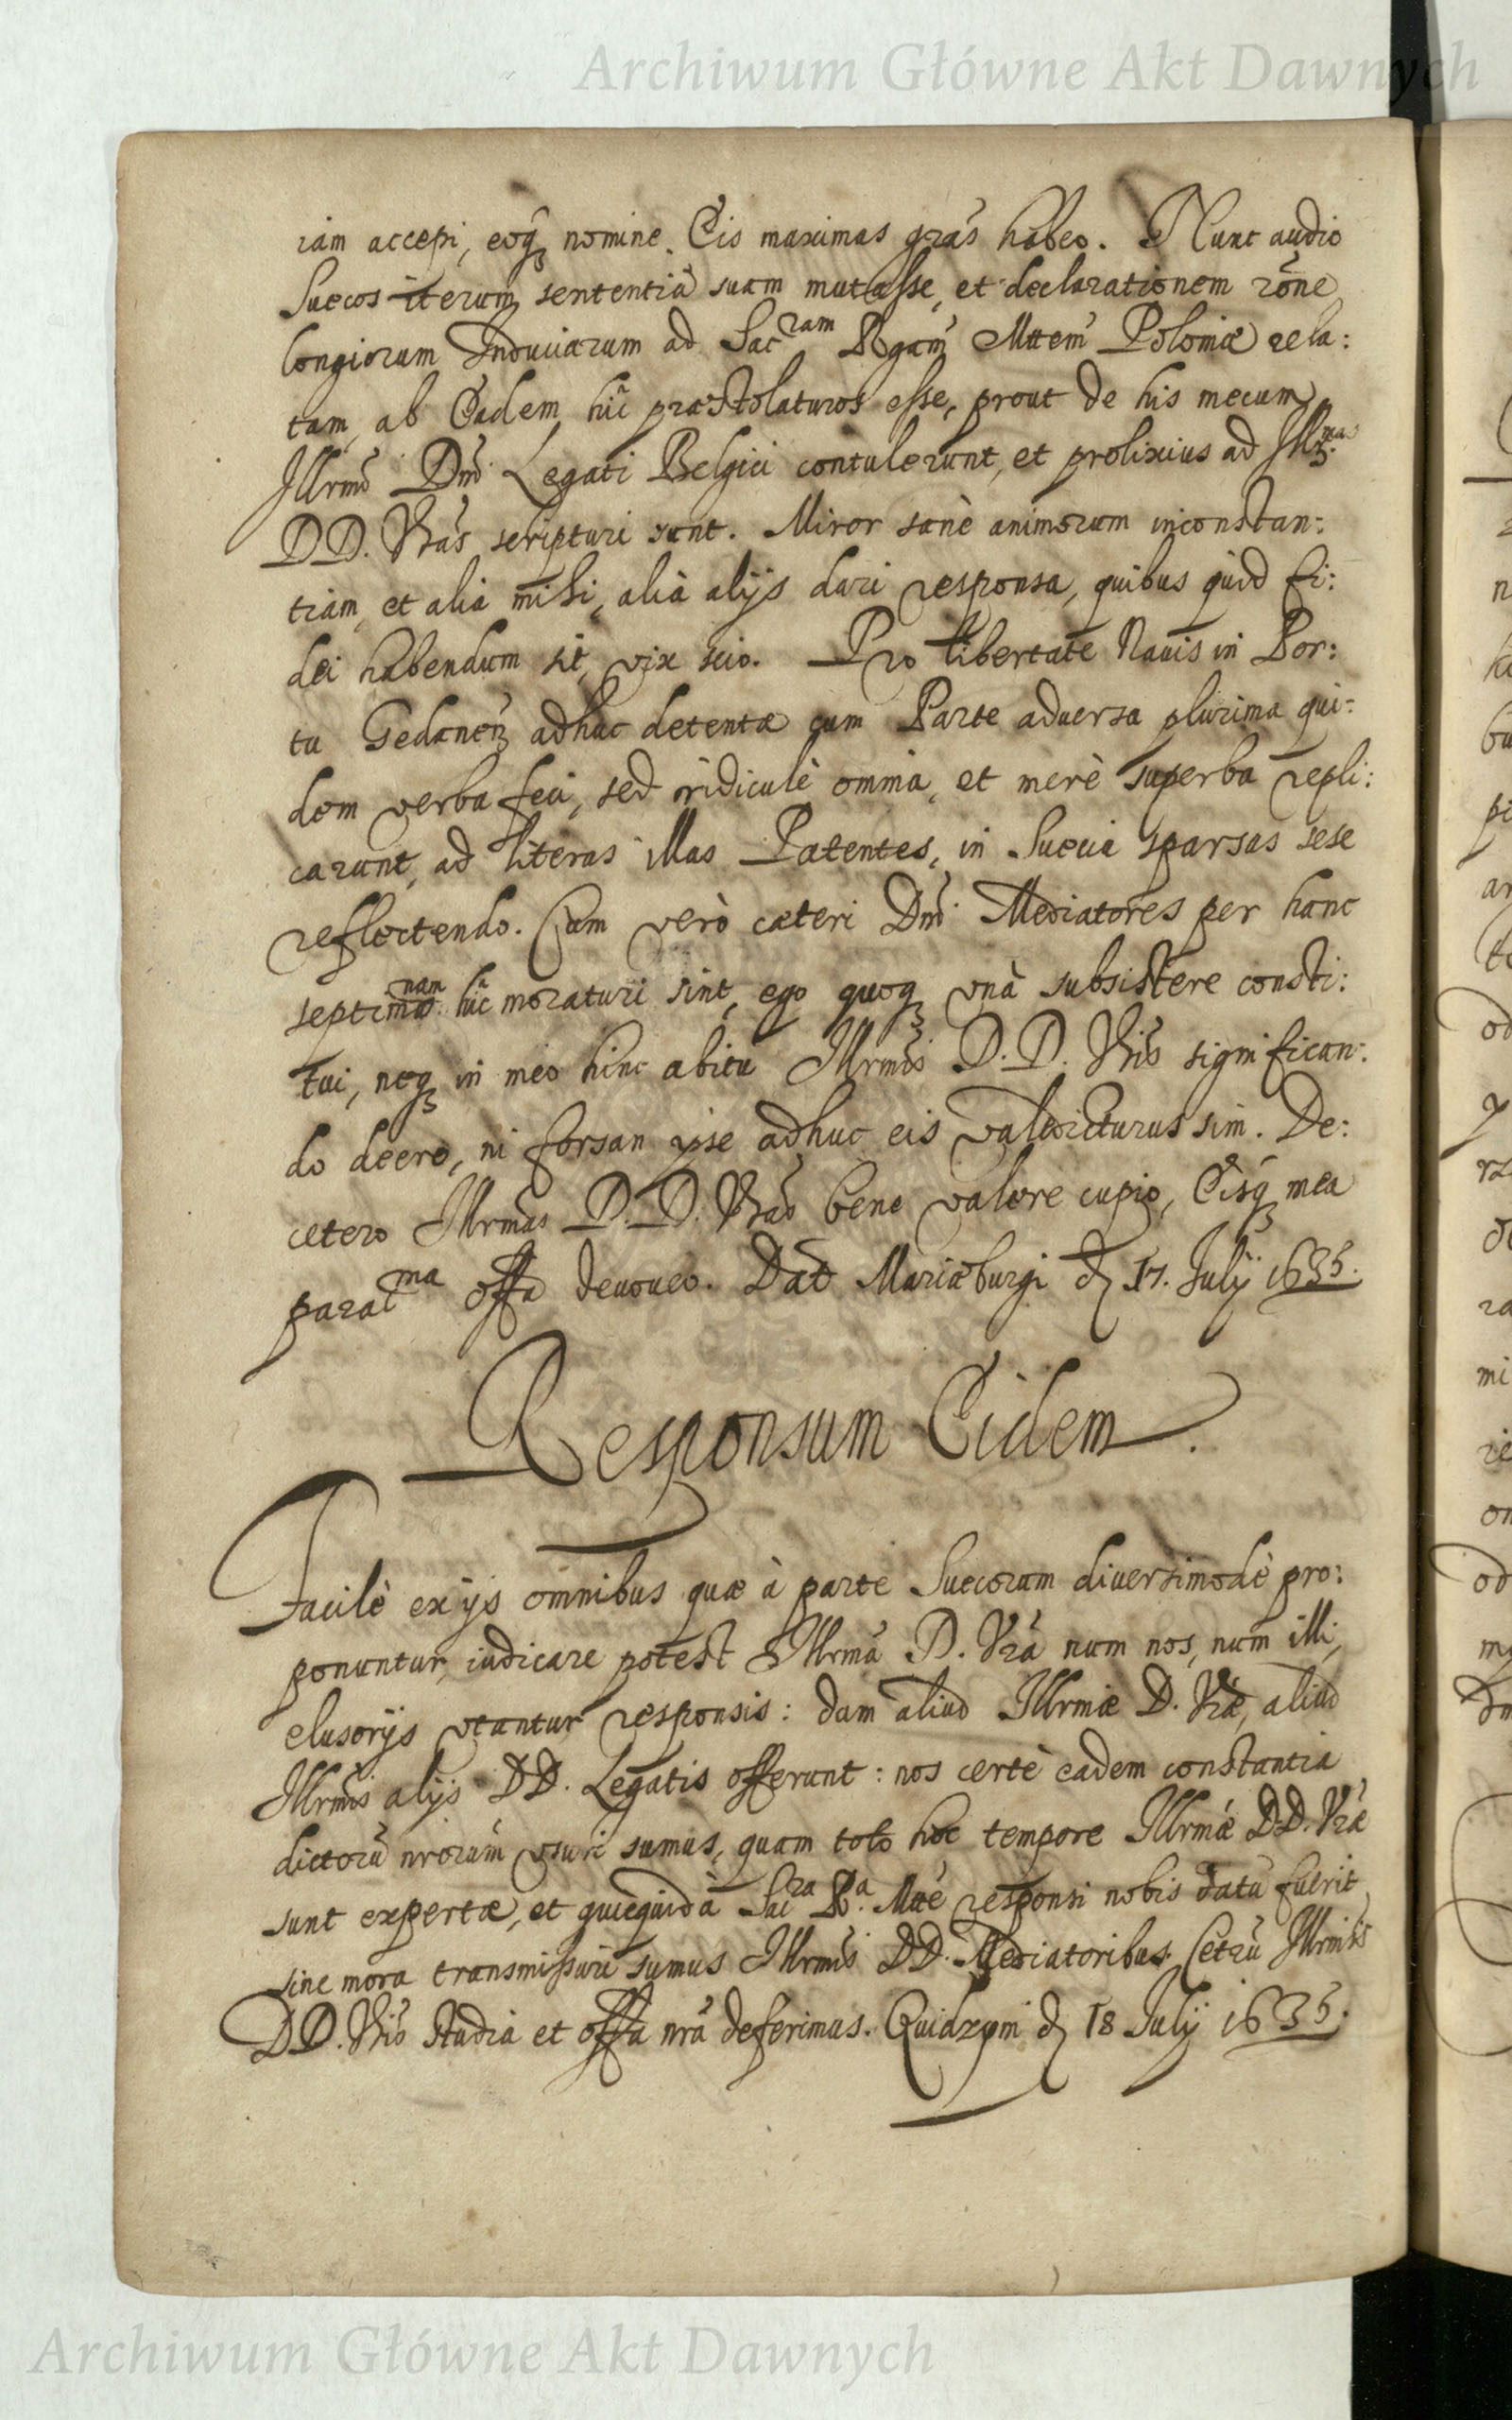 Archiwum Główne Akt Dawnych
iam accepi, eoq nomine Eis maximas grãs habeo. Nunc audio
Suecos iterum sententiã suam mutasse, et declarationem rõne
longiorum Induciarum ad Sac ram Rgam Mttem Poloniæ rela:
tam, ab Eadem hîc præstolaturos esse, prout de his mecum
Illrmi Dni Legati Belgici contulerunt, et prolixius ad Illmas
DD. Vras scripturi sunt. Miror sanè animorum inconstan:
tiam, et alia mihi, alia alijs dari responsa, quibus quid fi:
dei habendum sit, vix scio. Pro libertate Nauis in Por:
tu Gedanen adhuc detentæ cum Parte aduersa plurima qui:
dem verba feci, sed ridiculè omnia, et merè superba repli:
carunt, ad literas illas Patentes, in Suecia sparsas sese
reflectendo. Cum verò cæteri Dni Mediatores per hanc
septimanam hîc moraturi sint, ego quoq unà subsistere consti:
tui, neq in meo hinc abitu Illrmis D.D. Vris significan:
do deero, ni forsan ipse adhuc eis valedicturus sim. De:
cetero Illrmas D.D. Vras bene valere cupio, Eisq mea
parat ma offa deuoueo. Dat Mariæburgi d 17. Julij 1635.
Responsum Eidem.
Facilè ex ijs omnibus quæ à parte Suecorum diuersimodè pro:
ponuntur, iudicare potest Illrma D. Vra num nos, num illi,
elusorijs vtantur responsis: dum aliud Illrmæ D. Vræ, aliud
Illrmis alijs DD. Legatis offerunt: nos certè eadem constantia
dictorũ nrorum vsuri sumus, quam toto hoc tempore Illrmæ DD. Vræ
sunt expertæ, et quicquid à Sac ra R.a Mtte responsi nobis datũ fuerit
sine mora transmissuri sumus Illrmis DD. Mediatoribus. Cetrũ Illrmis
DD. Vris studia et offa nrã deferimus. Quidzyni d 18 Julij 1635.
Archiwum Główne Akt Dawnych